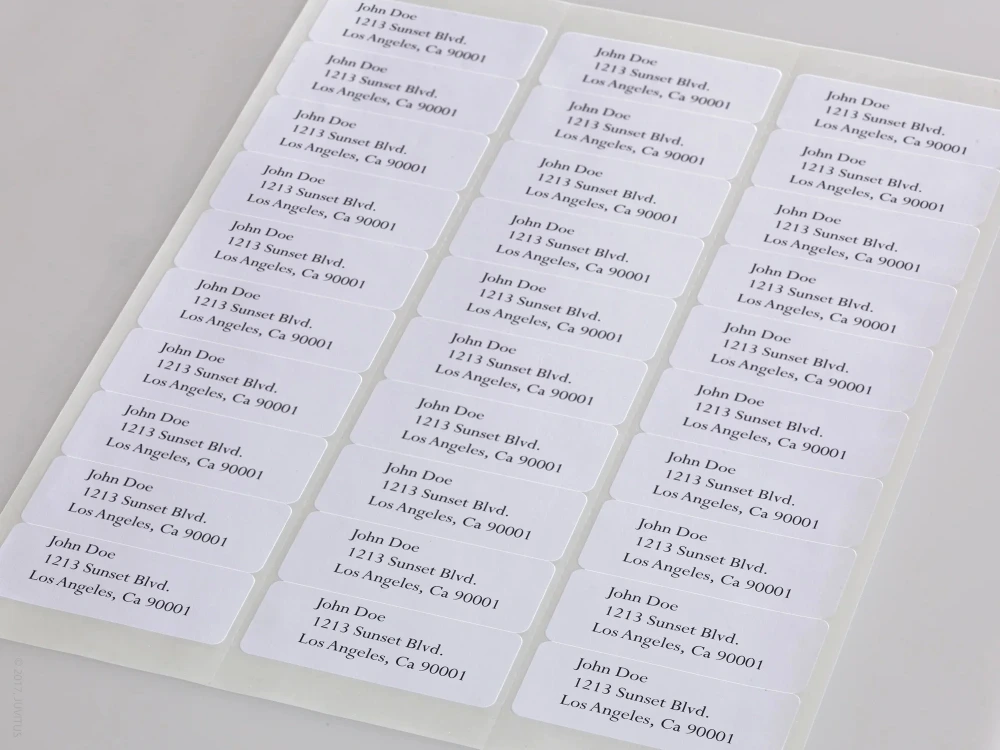 John Doe
1213 Sunset Blvd.
Los Angeles, Ca 90001
John Doe
1213 Sunset Blvd.
Los Angeles, Ca 90001
John Doe
1213 Sunset Blvd.
Los Angeles, Ca 90001
John Doe
1213 Sunset Blvd.
Los Angeles, Ca 90001
John Doe
1213 Sunset Blvd.
Los Angeles, Ca 90001
John Doe
1213 Sunset Blvd.
Los Angeles, Ca 90001
John Doe
1213 Sunset Blvd.
Los Angeles, Ca 90001
John Doe
1213 Sunset Blvd.
Los Angeles, Ca 90001
John Doe
1213 Sunset Blvd.
Los Angeles, Ca 90001
John Doe
1213 Sunset Blvd.
Los Angeles, Ca 90001
John Doe
1213 Sunset Blvd.
Los Angeles, Ca 90001
John Doe
1213 Sunset Blvd.
Los Angeles, Ca 90001
John Doe
1213 Sunset Blvd.
Los Angeles, Ca 90001
John Doe
1213 Sunset Blvd.
Los Angeles, Ca 90001
John Doe
1213 Sunset Blvd.
Los Angeles, Ca 90001
John Doe
1213 Sunset Blvd.
Los Angeles, Ca 90001
John Doe
1213 Sunset Blvd.
Los Angeles, Ca 90001
John Doe
1213 Sunset Blvd.
Los Angeles, Ca 90001
John Doe
1213 Sunset Blvd.
Los Angeles, Ca 90001
John Doe
1213 Sunset Blvd.
Los Angeles, Ca 90001
John Doe
1213 Sunset Blvd.
Los Angeles, Ca 90001
John Doe
1213 Sunset Blvd.
Los Angeles, Ca 90001
John Doe
1213 Sunset Blvd.
Los Angeles, Ca 90001
John Doe
1213 Sunset Blvd.
Los Angeles, Ca 90001
John Doe
1213 Sunset Blvd.
Los Angeles, Ca 90001
John Doe
1213 Sunset Blvd.
Los Angeles, Ca 90001
John Doe
1213 Sunset Blvd.
Los Angeles, Ca 90001
John Doe
1213 Sunset Blvd.
Los Angeles, Ca 90001
John Doe
1213 Sunset Blvd.
Los Angeles, Ca 90001
John Doe
1213 Sunset Blvd.
Los Angeles, Ca 90001
© 2017